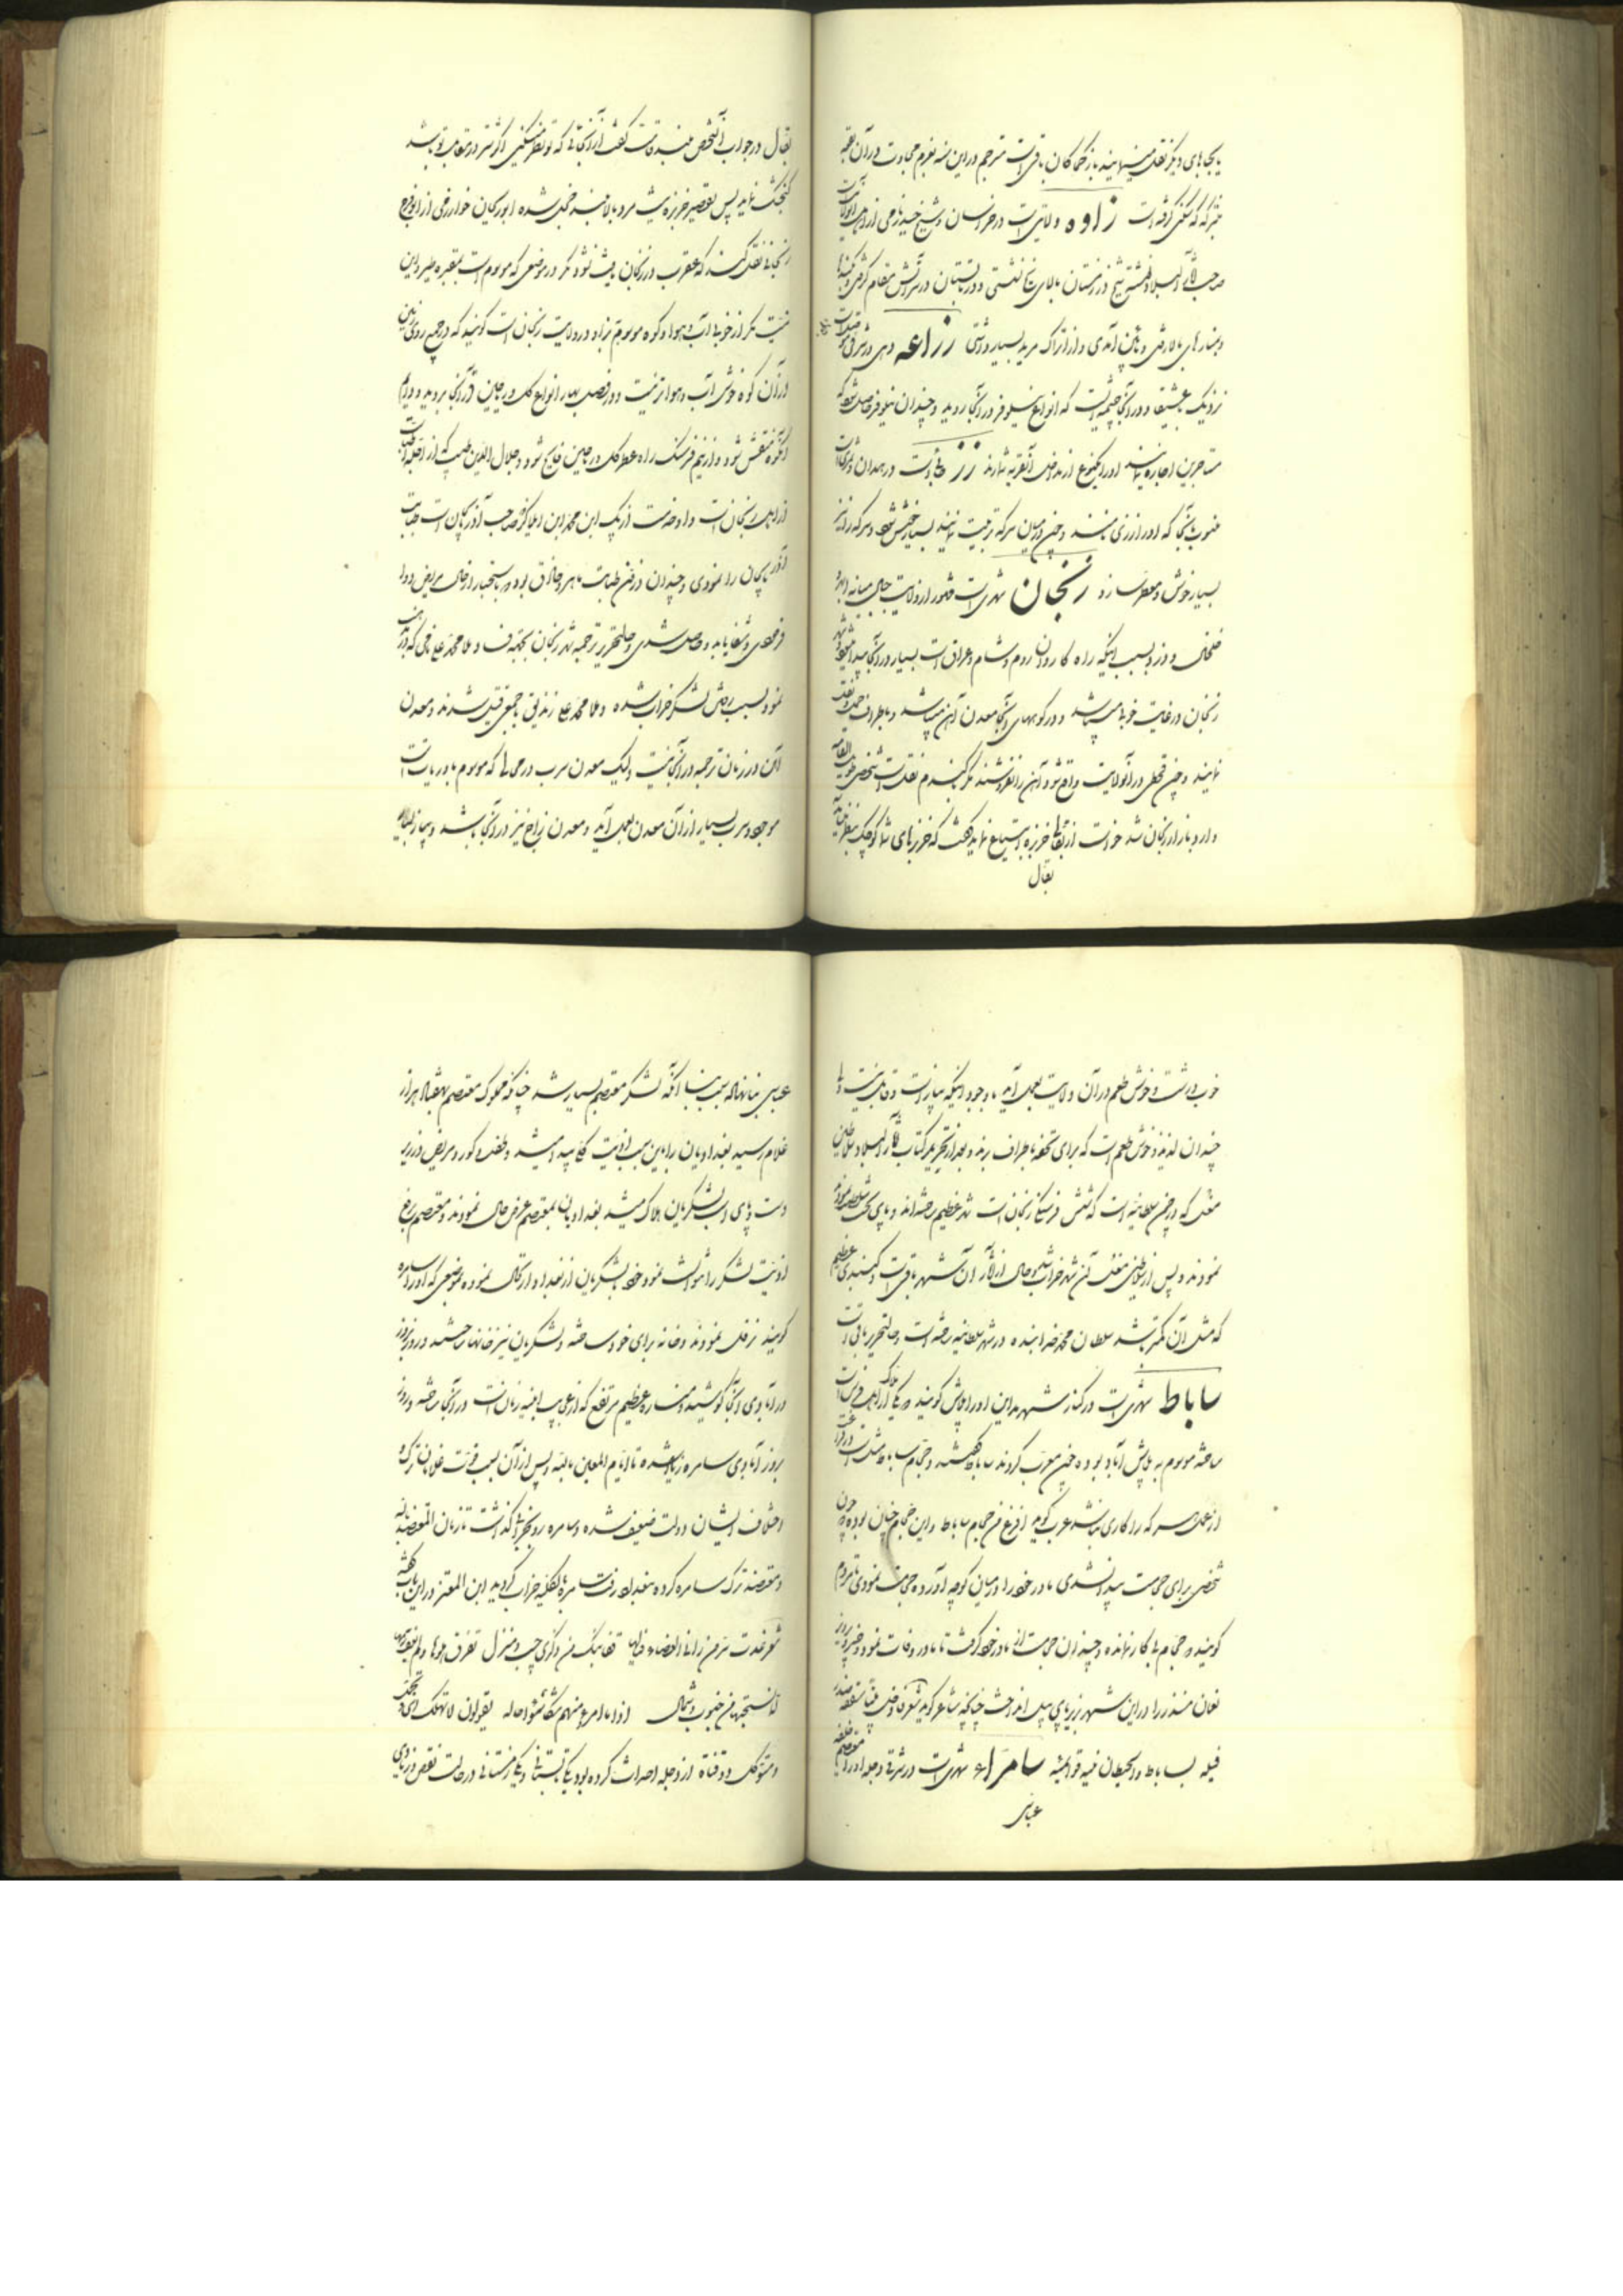 یا بجاهای دیگر نقل مینمایند باز کماکان باقی است مترجم در این سنه بعزم مجاورت در آن بقعه
متبرکه که سکنی گرفته است زاوه ولایتی است در خراسان و شیخ حیدر زاوه‌ای از اهل آنولایت است
صاحب آثار البلاد نوشته شیخ در زمستان بالای یخ نشستی و در تابستان در آتش مقام گرفتی و
و بمنارهای بالا رفتی و پائین آمدی و از اتراک مرید بسیار داشتی زراعه دهی در شرقی موصل است
نزدیک بعشیقا و در آنجا چشمه ایست که انواع نیلوفر در آنجا روید و چندان نیلوفر حاصل شود که
مستاجرین اجاره نمایند و در آنجا نوع از مداخل آنقریه شمارند زز دهی است در همدان
منسوب بآنجا که او را زری میند و چون در میان سرکه تربیت نمایند بسیار خوش شود و سرکه را نیز
بسیار خوش و معطر سازد زنجان شهری است مشهور از ولایت جبال میانه ابهر
خلخال و در بسبب اینکه راه کاروان روم و شام و عراق است بسیار در آنجا پیدا میشود
زنجان در غایت خوبی میباشد و در کوههای آنجا معدن آهن میباشد و باطراف حمل و نقل
نمایند و چون قحطی در آنولایت واقع شود آهن را نفروشند مگر بگندم نقلست شخصی طویل القامه
وارد بازار زنجان شد خواست از بقالی خربزه ابتیاع نماید گفت که خربزهای شما کوچک بنظر می‌آید
بقال
بقال در جواب آنشخص بلند قامت گفت از آنجائی که تو نظر میکنی اگر شتر در مقابل تو باشد
گنجشک نماید پس تقصیر خربزه نیست مرد بالا بلند خجل شده ابوریحان خوارزمی از ابوالفرج
زنجانی نقل کند که عقرب در زنجان یافت نشود مگر در موضعی که موسوم است بمقبره علویین و این
نیست مگر از خوبی آب و هوا و کوه موسوم بزاد در ولایت زنجان است گویند که در جمیع روی زمین
در آن کوه خوش آب و هواتر نیست و در فصل بهار انواع گل و ریاحین در آنجا بروید و دوام
آنکوه منقش شود و از نیم فرسنگ راه عطر گل و ریاحین فایح شود و جلال الدین طبیب که از اجله اطبا است
از اهل زنجان است و او خدمت ازبک ابن محمد ابن ایلدگز صاحب آذربایجان است طبابت
آذربایجان را نمودی و چندان در فن طبابت ماهر و حاذق بوده باستخبار از حال مریض دوا
فرمودی و شفا یابد و حاصل شدی و حالتحریر ترجمه شهر زنجان بجهة فساد ملا محمد علی نامی که در
نمود بسبب رفتن لشکر خراب شده و ملا محمد علی زندیق با جمعی قتیل شدند و معدن
آهن در زمان ترجمه در آنجا نیست ولیک معدن سرب در محالی که موسوم است
موجود و سرب بسیار از آن معدن بعمل آید و معدن زاج نیز در آنجا باشد و پیاز
خوب و درشت و خوش طعم در آن ولایت بعمل آید با وجود اینکه پیاز است و قابل نیست
چندان لذیذ و خوش طعم است که برای تحفه باطراف برند و بعد از تحریر کتاب آثار البلاد سلاطین
مغول که در چمن سلطانیه است که شش فرسنگی زنجان است شهر عظیم ساخته‌اند و پای تخت
نمودند و پس از سلاطین مغول آن شهر خراب شده و حال از آثار آن شهر باقی است و گنبدی عظیم
که مثل آن کمتر باشد سلطان محمد خدابنده در شهر سلطانیه ساخته است و حالتحریر باقی است
ساباط شهری است در کنار شهر مداین او را بلاش گویند و یکی از ملوک فرس
ساخته موسوم به بلاش آباد بوده چون معرب کردند ساباط گفتند و حجام ساباط مثلست در
از عمل هر کس که را کاری نباشد عرب گوید افرغ من حجام ساباط و این حجام چنان بوده که چون
شخصی برای حجامت پیدا نشدی مادر خود را در میان کوچه آورده حجامت نمودی تا مردم
گویند حجام بیکار نمانده و چندان حجامت از مادر خود گرفت تا مادر وفات نمود و خسرو پرویز
نعمان منذر را در این شهر زیر پای پیل انداخت چنانچه شاعر گوید شعر
فیله بساباط و الحیطان فیه قوائمه سامراء شهری است در شرقی دجله او را معتصم خلیفه
عباسی
عباسی بنا نهاد سبب بنا آنکه لشکر معتصم بسیار شد چنانکه مملوک معتصم بهفتاد هزار
غلام رسید بغدادیان را باین سبب اذیت کلی پیدا میشد و طفل و کور و مریض در زیر
دست و پای اسب لشکریان هلاک میشد بغدادیان بمعتصم عرض حال نمودند و معتصم رفع
اذیت لشکر را خواست نمود خود با لشکریان از بغداد ارتحال نموده بموضعی که او را سامره
گویند نزول نمودند و خانه برای خود ساخته و لشکریان نیز خانها ساختند و روز بروز
در آبادی آنجا کوشیدند و مناره عظیم مرتفع که از عجایب ابنیه زمان است در آنجا ساخته و روز
بروز آبادی سامره زیاد شده تا ایام المعین بالله و پس از آن بسبب قوت غلامان ترک و
اختلاف ایشان دولت ضعیف شده و سامره رو بخرابی گذاشت تا زمان المعتضد بالله
و معتضد ترک سامره کرده ببغداد رفت سامره بالکلیه خراب گردید ابن المعتز در این باب گفته
شعر غدت سر من رای فی العفاء فیالها قفا نبک من ذکری حبیب و منزل تفرق اهلوها ولم یعف رسمها
لما نسجتها من جنوب و شمال اذا ما امرؤ منهم شکا سوء حاله یقولون لا تهلک اسی و تجمل
و متوکل دو قناة از دجله احداث کرده بود یکی تابستانی و یکی زمستانی در حالت نقص و زیادی